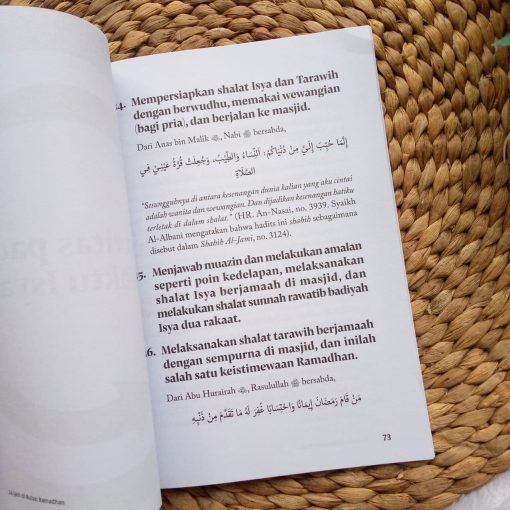 4. Mempersiapkan shalat Isya dan Tarawih
dengan berwudhu, memakai wewangian
(bagi pria), dan berjalan ke masjid.
Dari Anas bin Malik ﷺ, Nabi ﷺ bersabda,
إِنَّمَا حُبِّبَ إِلَيَّ مِنْ دُنْيَاكُمْ: النِّسَاءُ وَالطِّيْبُ، وَجُعِلَتْ قُرَّةُ عَيْنِيْ فِي
الصَّلَاةِ
"Sesungguhnya di antara kesenangan dunia kalian yang aku cintai
adalah wanita dan wewangian. Dan dijadikan kesenangan hatiku
terletak di dalam shalat." (HR. An-Nasai, no. 3939. Syaikh
Al-Albani mengatakan bahwa hadits ini shahih sebagaimana
disebut dalam Shahih Al-Jami, no. 3124).
5. Menjawab muazin dan melakukan amalan
seperti poin kedelapan, melaksanakan
shalat Isya berjamaah di masjid, dan
melakukan shalat sunnah rawatib badiyah
Isya dua rakaat.
6. Melaksanakan shalat tarawih berjamaah
dengan sempurna di masjid, dan inilah
salah satu keistimewaan Ramadhan.
Dari Abu Hurairah, Rasulullah ﷺ bersabda,
مَنْ قَامَ رَمَضَانَ إِيْمَانًا وَاحْتِسَابًا غُفِرَ لَهُ مَا تَقَدَّمَ مِنْ ذَنْبِهِ
73
24 Jam di Bulan Ramadhan